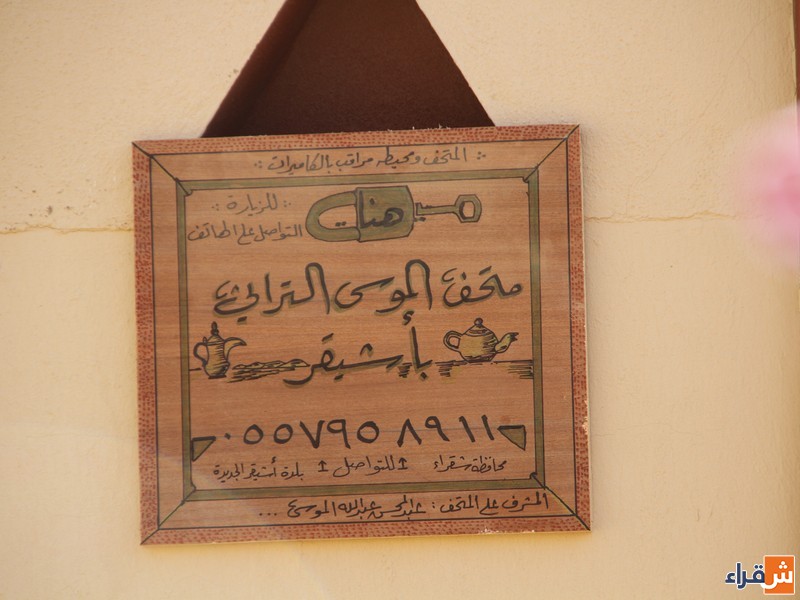 المتحف ومحيطه مراقب بالكاميرات
هنات
للزيارة
التواصل على الهاتف
متحف الموسى التراثي
بأشيقر
٠٥٥٧٩٥٨٩١١
محافظة شقراء للتواصل بلدة أشيقر الجديدة
المشرف على المتحف : عبدالمحسن عبدالله الموسى ...
شقراء